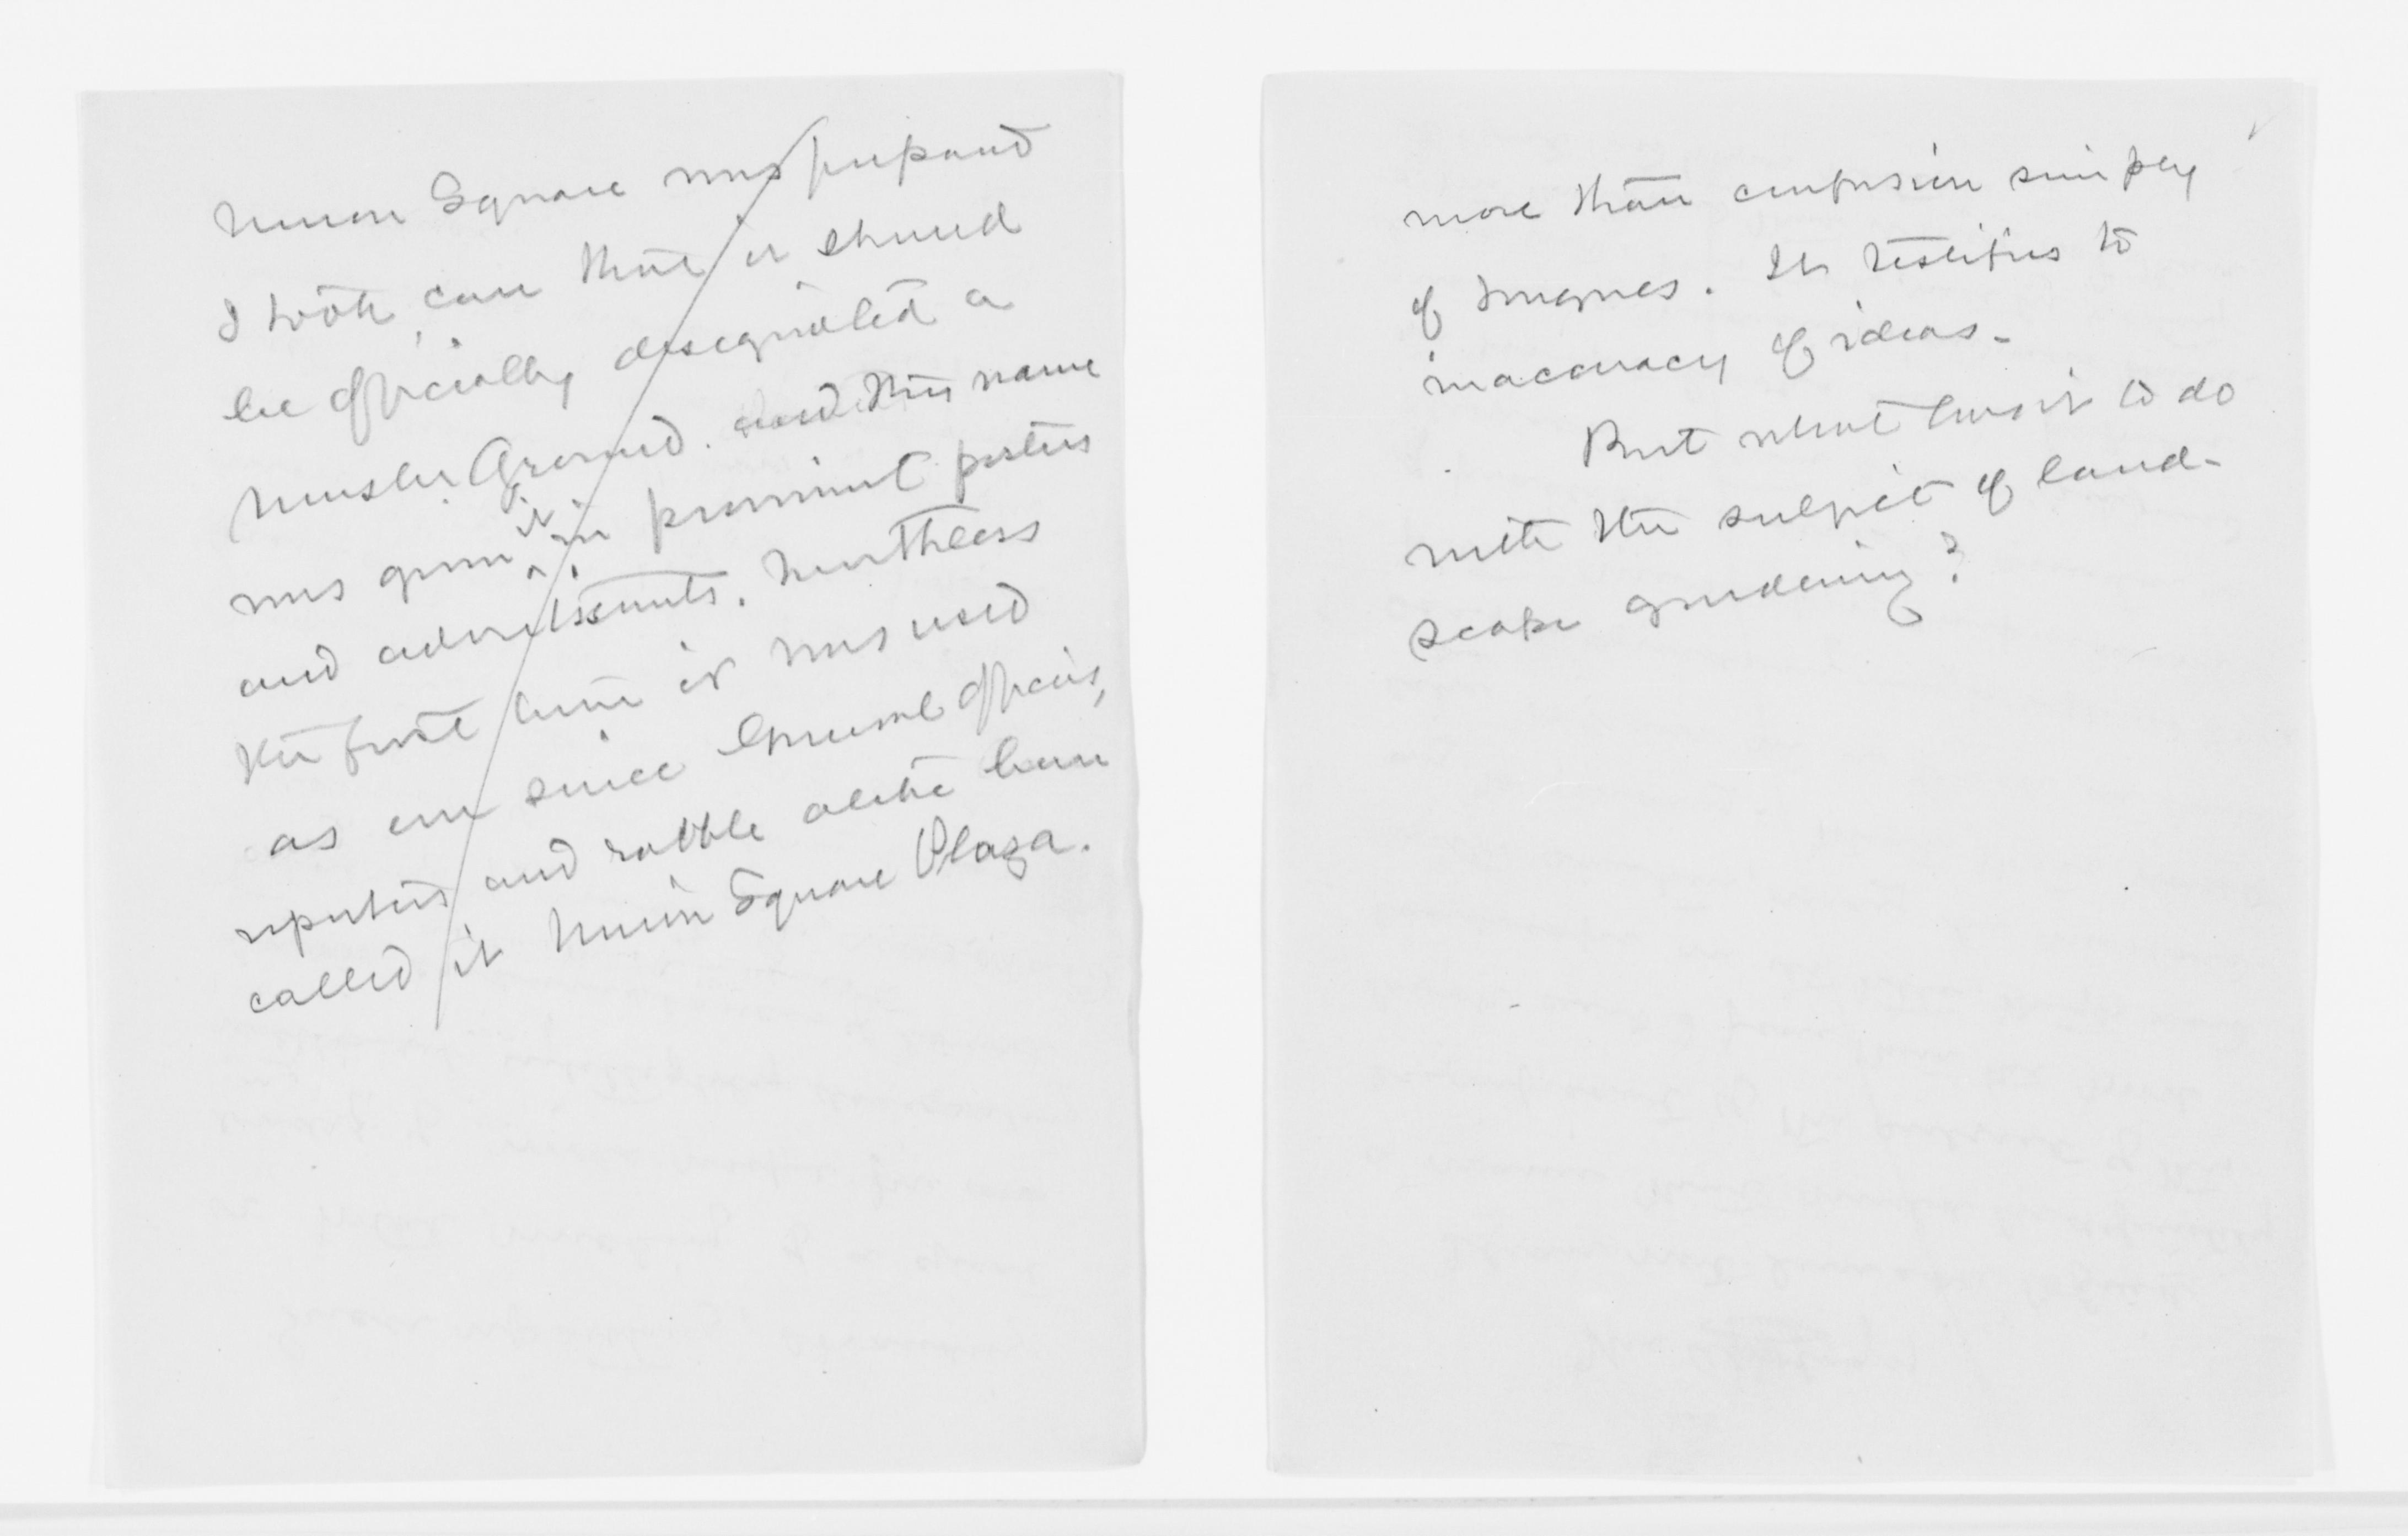 Union Square was prepared
I took care that it should
be officially designated a
Muster Ground. and this name
was given it in prominent posters
and advertisements. Nevertheless
the first time it was used
as one since General officers,
reporters and rabble alike have
called it Union Square Plaza.
more than confusion simply
of tongues. It testifies to
inaccuracy of ideas.
But what has it to do
with the subject of land-
scape gardening?